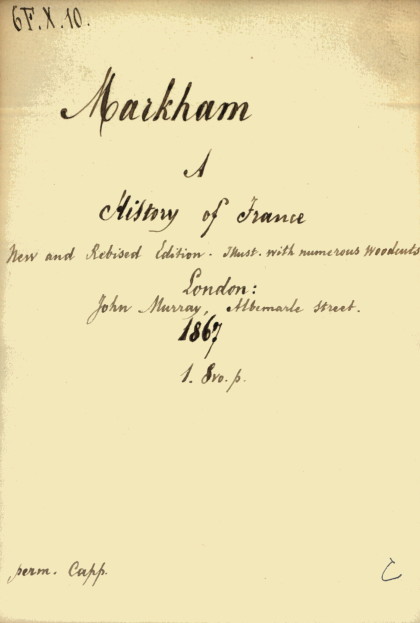 6F.X.10.
Markham
A
History of France
New and Rebised Edition. Illust. with numerous Woodcuts
London:
John Murray, Albemarle Street.
1867
1. 8vo. p.
perm. Capp.